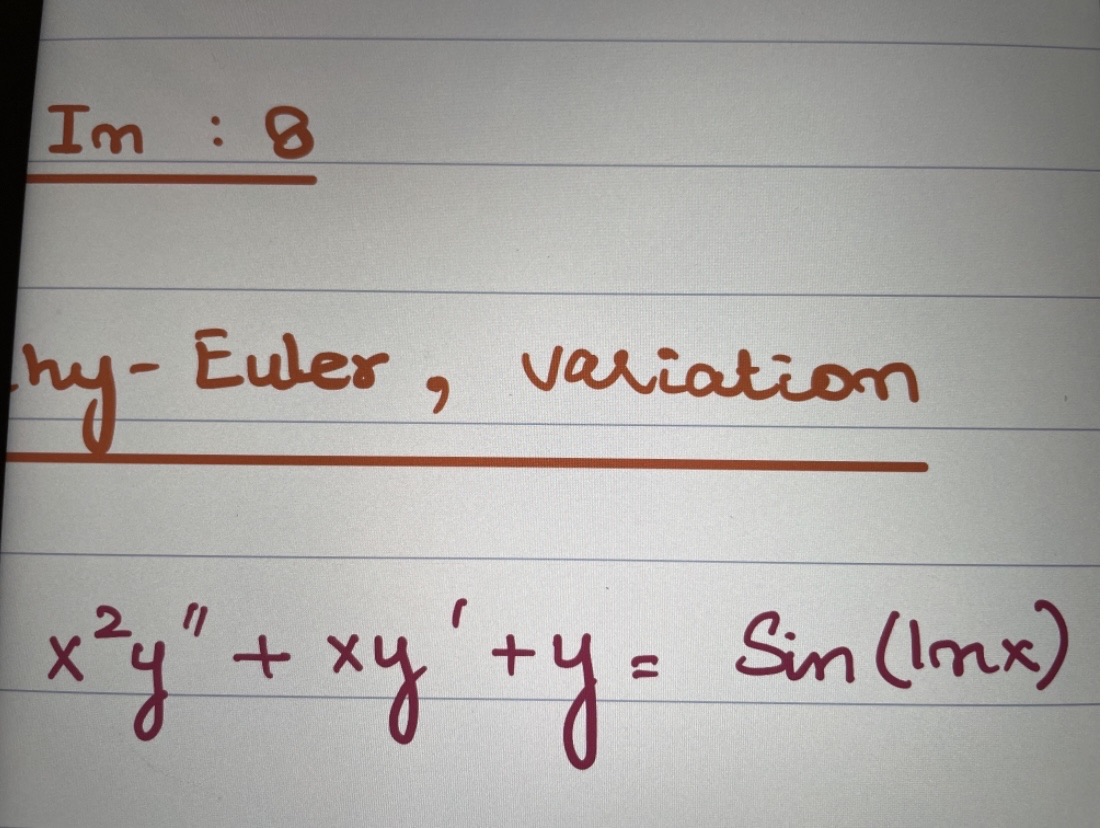 Im : 8
hy- Euler, variation
x²y" + xy' + y = Sin(lnx)